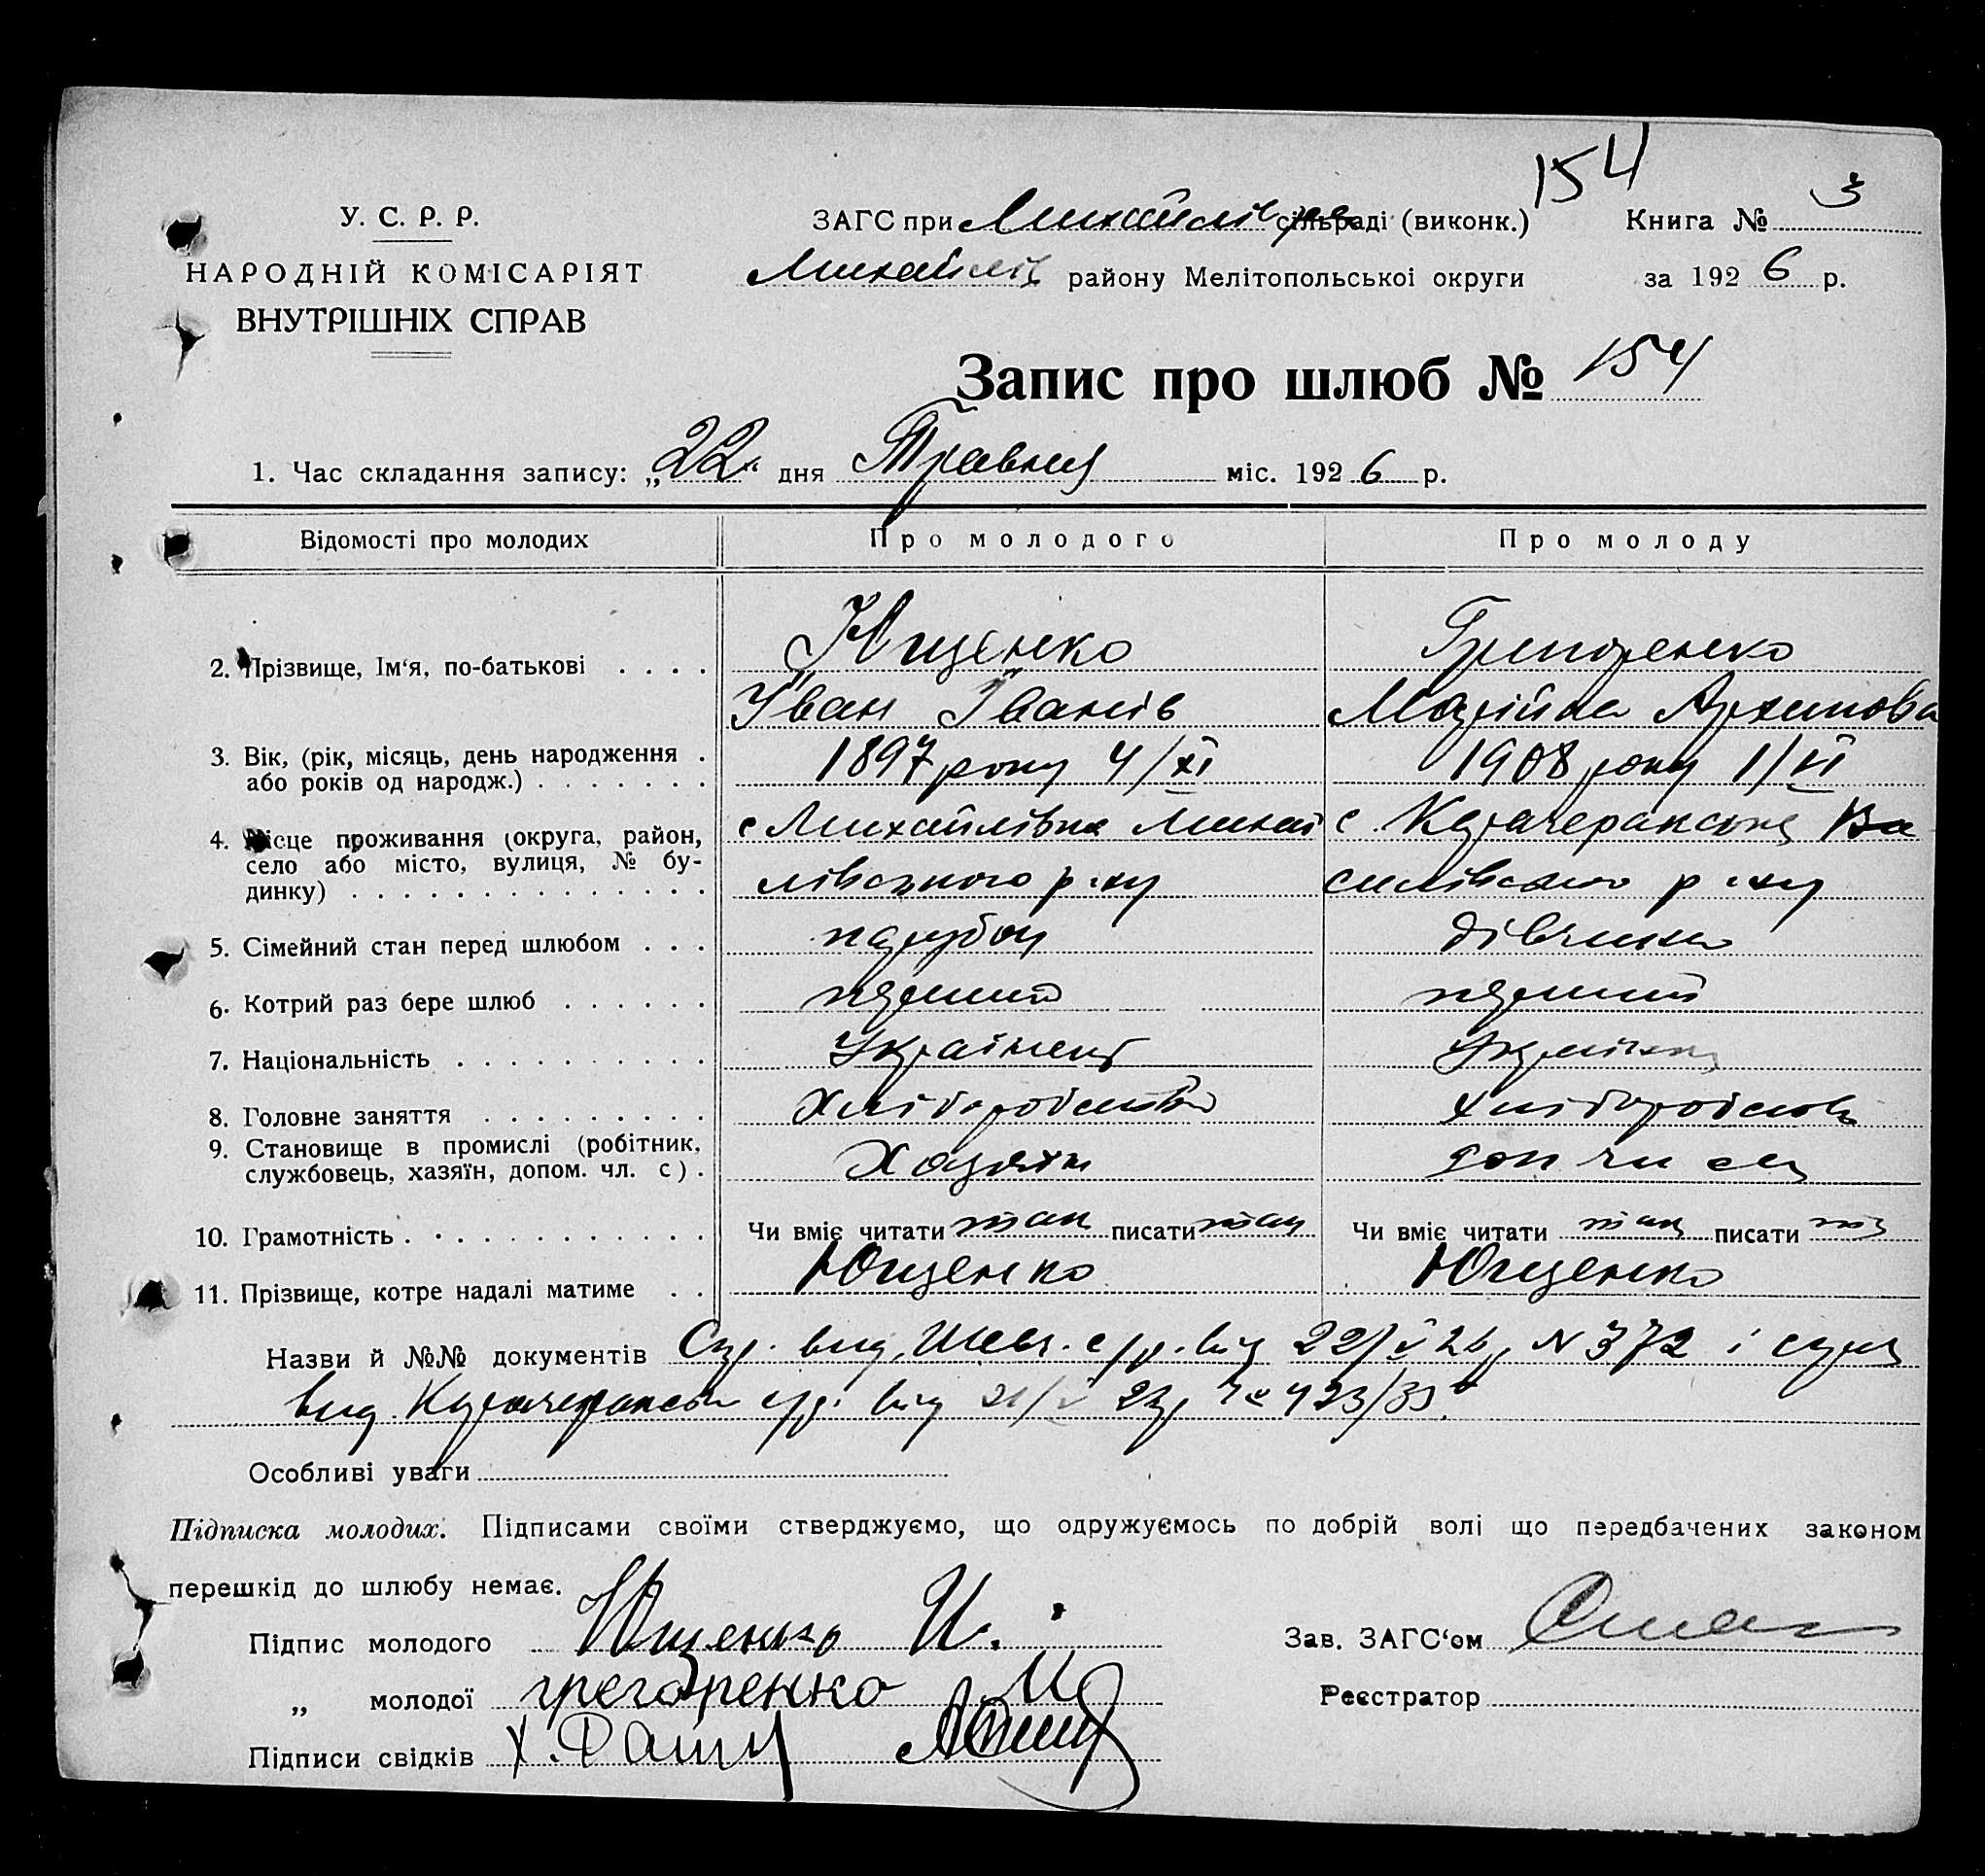 154
У. С. Р. Р.
ЗАГС при Михайлів сільраді (виконк.) Книга № 3
НАРОДНІЙ КОМІСАРІЯТ
Михайлів району Мелітопольскоі округи за 1926 р.
ВНУТРІШНІХ СПРАВ
Запис про шлюб № 154
1. Час складання запису: „22" дня Травня міс. 1926 р.
Відомості про молодих Про молодого Про молоду
2. Прізвище, Ім'я, по-батькові . . . . Ющенко Григоренко
Іван Іванів Марійка Архипова
3. Вік, (рік, місяць, день народження . 1897 року 4/XI 1908 року 1/VI
або років од народж.) . . . . . . .
4. Місце проживання (округа, район, с Михайлівка Михай с. Карачекракська Ва
село або місто, вулиця, № бу-
динку) . . . . . . . . . . . . . . лівського р-ну силівського р-ну
5. Сімейний стан перед шлюбом . . . парубок дівчина
6. Котрий раз бере шлюб . . . . . . перший перший
7. Національність . . . . . . . . . . Українець Українка
8. Головне заняття . . . . . . . . . Хліборобство хліборобство
9. Становище в промислі (робітник, Хазяїн доп чл см
службовець, хазяїн, допом. чл. с) .
10. Грамотність . . . . . . . . . . . . Чи вміє читати так писати так Чи вміє читати так писати так
11. Прізвище, котре надалі матиме . . Ющенко Ющенко
Назви й №№ документів вид. с/р. від 22/V 26 р N 372 і
вид с/р. від 21/V
Особливі уваги
Підписка молодих. Підписами своїми стверджуємо, що одружуємось по добрій волі що передбачених законом
перешкід до шлюбу немає.
Підпис молодого Ющенко И. Зав. ЗАГС'ом
„ молодої грегоренко М Реєстратор
Підписи свідків